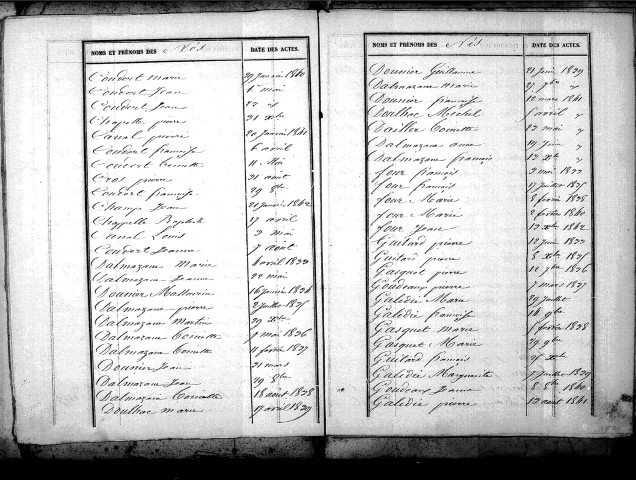 NOMS ET PRÉNOMS DES Nés DATE DES ACTES.
Coudert marie 29 Janvier 1840
Coudert Jean 1 mai
Coudert Jean 22 id
Chapelle pierre 21 Xbre
Canal pierre 20 Janvier 1841
Coudert françoise 6 avril
Coudert Toinette 11 Mai
Cros pierre 21 août
Coudert françoise 29 8bre
Champ Jean 21 Janvier 1842
Chappelle Baptiste 17 avril
Canal Louis 2 mai
Coudert Jeanne 7 août
Dalmazane Marie 6 avril 1833
Dalmazane Jeanne 22 mai
Dounier Mathurin 16 Janvier 1834
Dalmazane pierre 2 Juillet 1835
Dalmazane Martin 29 Xbre
Dalmazane Toinette 9 mai 1836
Dalmazane Toinette 11 février 1837
Dounier Jean 21 mars
Dalmazane Jean 29 8bre
Dalmazane Toinette 18 août 1838
Doulhac marie 17 avril 1839
NOMS ET PRÉNOMS DES Nés DATE DES ACTES.
Dounier Guillaume 21 Juin 1839
Dalmazane Marie 27 7bre "
Dounier françoise 12 mars 1841
Doulhac Michel 5 avril "
Dailler Toinette 22 mai "
Dalmazane anne 19 Juin "
Dalmazane françois 12 Xbre "
four françois 2 mai 1833
four françois 17 Juillet 1835
four Marie 8 février 1838
four Marie 2 février 1840
four Jean 12 Xbre 1842
Guitard pierre 12 Juin 1833
Guitard pierre 5 Xbre 1835
Gasquet pierre 12 7bre 1836
Goudeaux pierre 7 mars 1837
Galidie Marie 29 Juillet
Galidie françoise 14 9bre
Gasquet marie 1 février 1838
Gasquet Marie 29 9bre
Guitard françois 25 Xbre
Galidie Marguerite 7 Juillet 1839
Goudeaux Jeanne 8 8bre 1840
Galidie pierre 12 août 1841